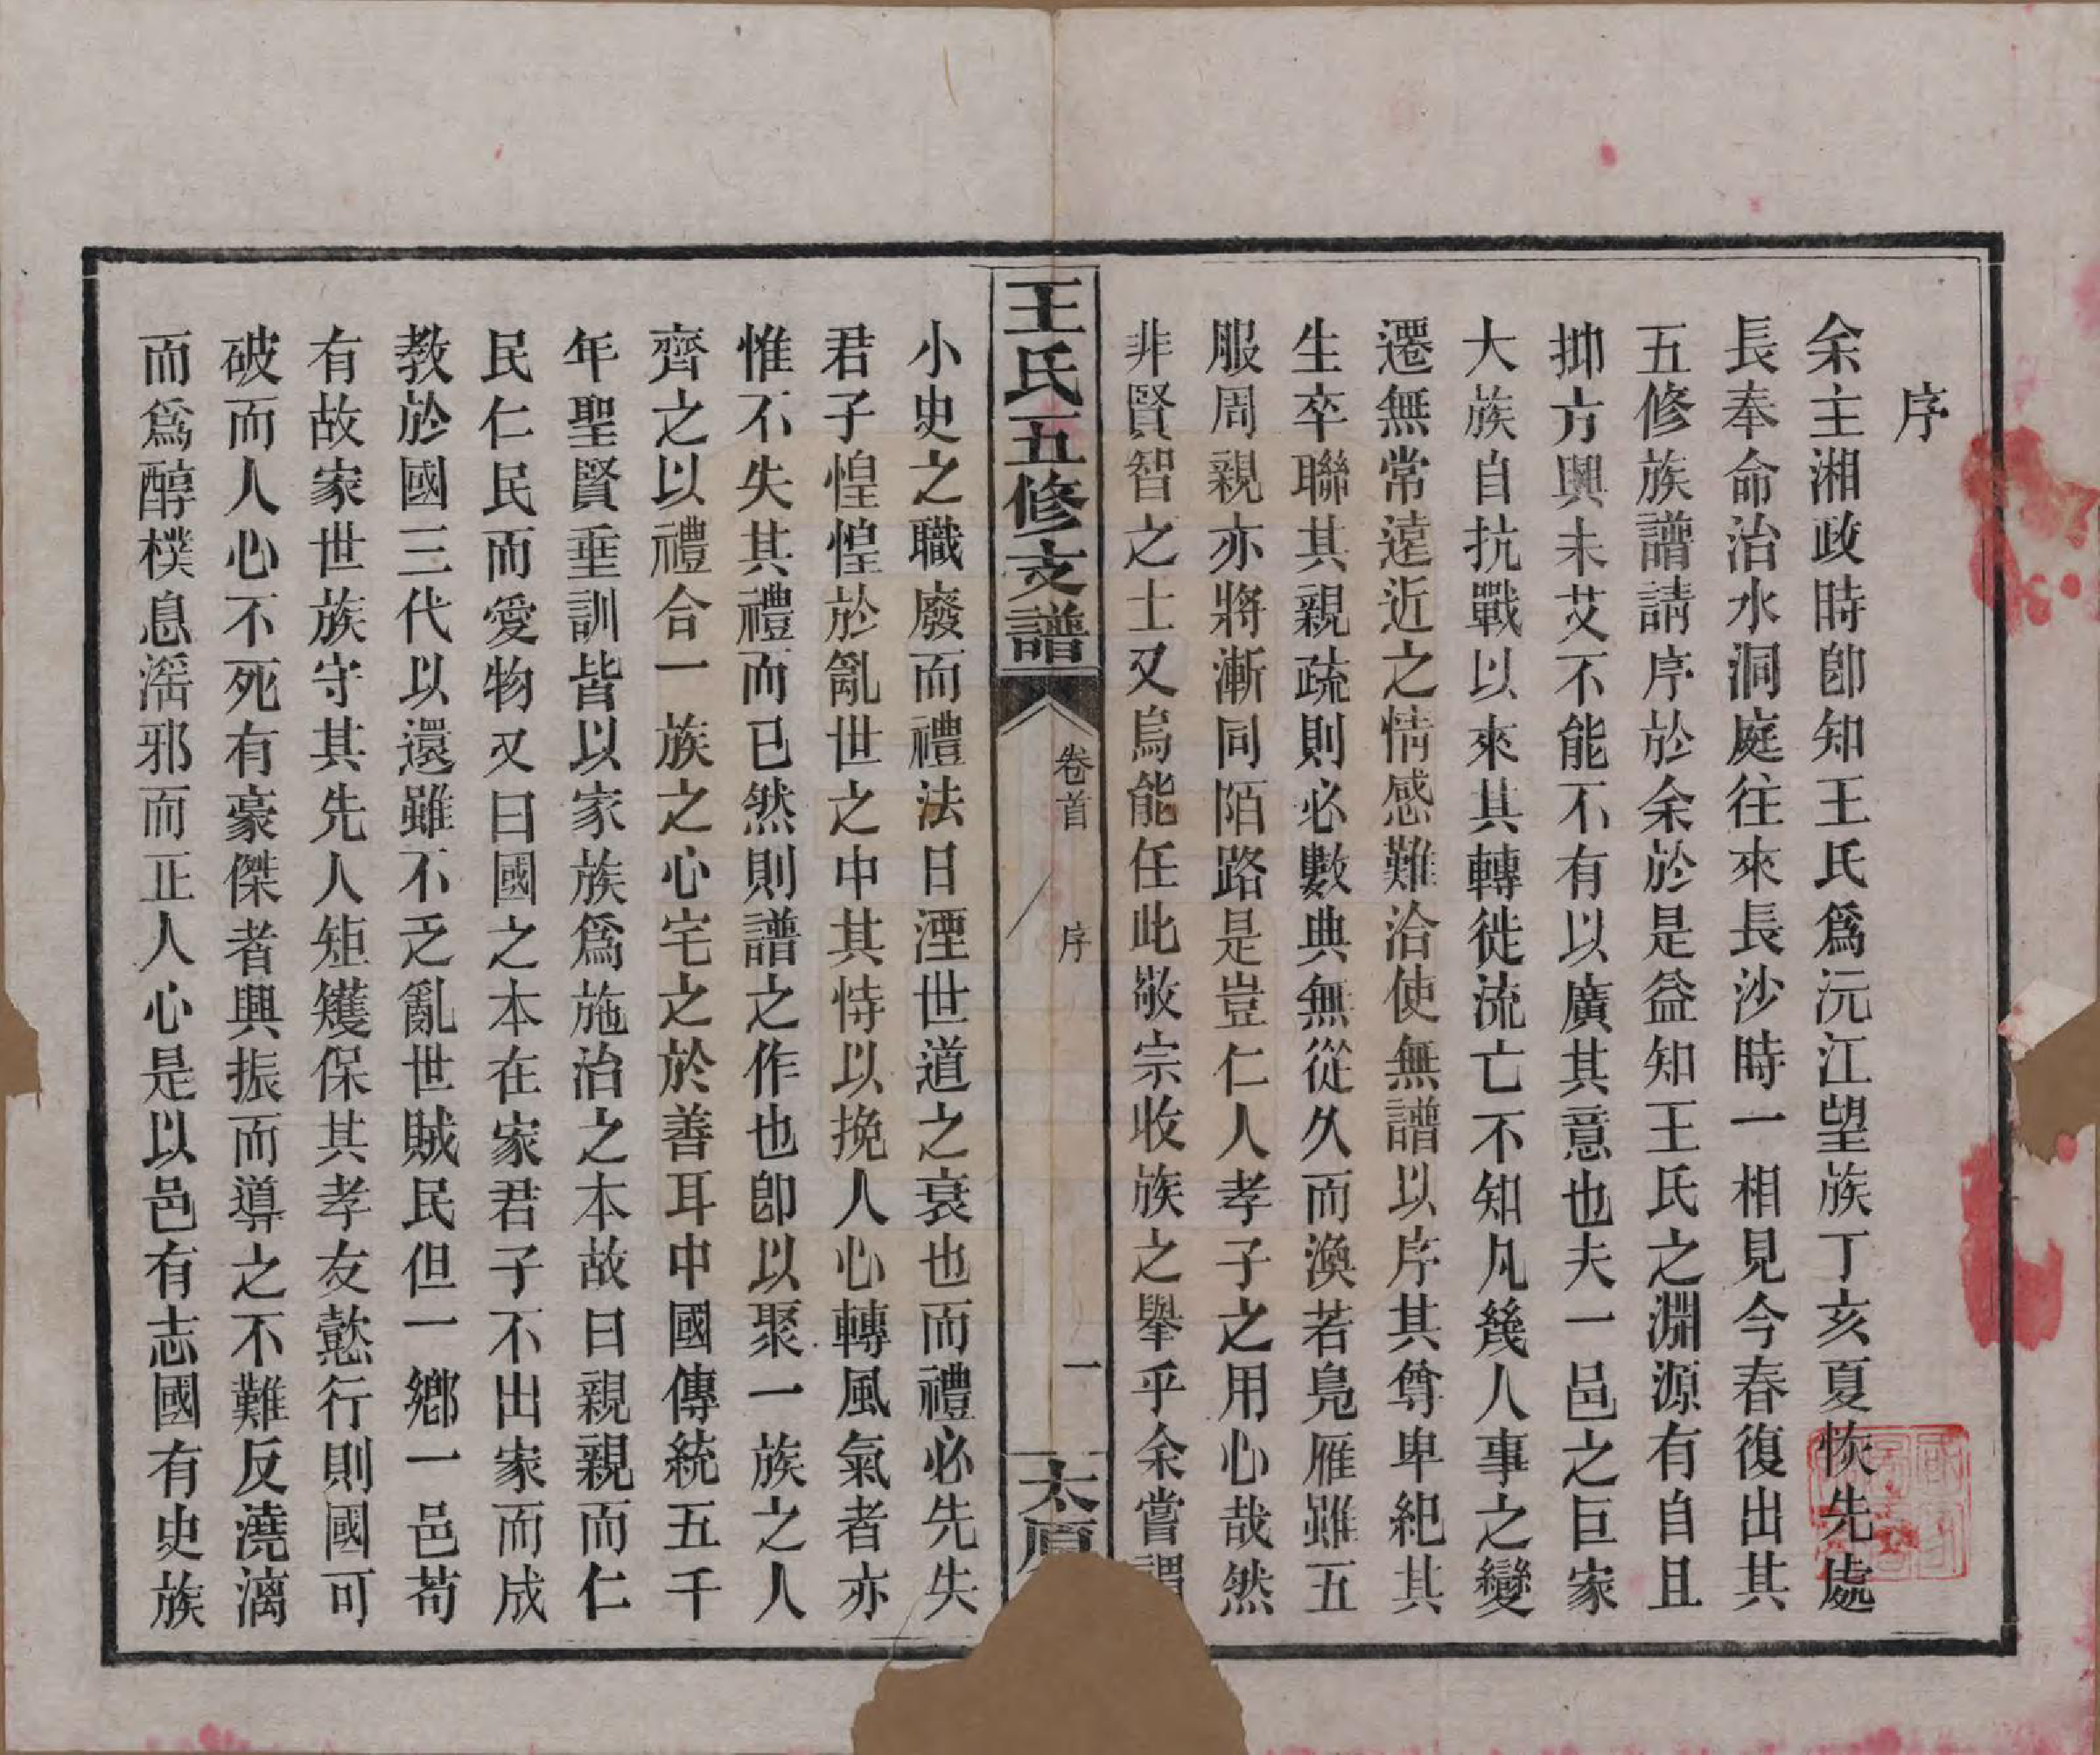 序
余主湘政時卽知王氏爲沅江望族丁亥夏恢先處
長奉命治水洞庭往來長沙時一相見今春復出其
五修族譜請序於余於是益知王氏之淵源有自且
抑方興未艾不能不有以廣其意也夫一邑之巨家
大族自抗戰以來其轉徙流亡不知凡幾人事之變
遷無常遠近之情感難洽使無譜以序其尊卑紀其
生卒聯其親疏則必數典無從久而渙若鳧雁雖五
服周親亦將漸同陌路是豈仁人孝子之用心哉然
非賢智之士又烏能任此敬宗收族之舉乎余嘗謂
王氏五修支譜
卷首
序
一
太原
小史之職廢而禮法日湮世道之衰也而禮必先失
君子惶惶於亂世之中其恃以挽人心轉風氣者亦
惟不失其禮而已然則譜之作也卽以聚一族之人
齊之以禮合一族之心宅之於善耳中國傳統五千
年聖賢垂訓皆以家族爲施治之本故曰親親而仁
民仁民而愛物又曰國之本在家君子不出家而成
教於國三代以還雖不乏亂世賊民但一鄉一邑苟
有故家世族守其先人矩矱保其孝友懿行則國可
破而人心不死有豪傑者興振而導之不難反澆漓
而爲醇樸息滛邪而正人心是以邑有志國有史族